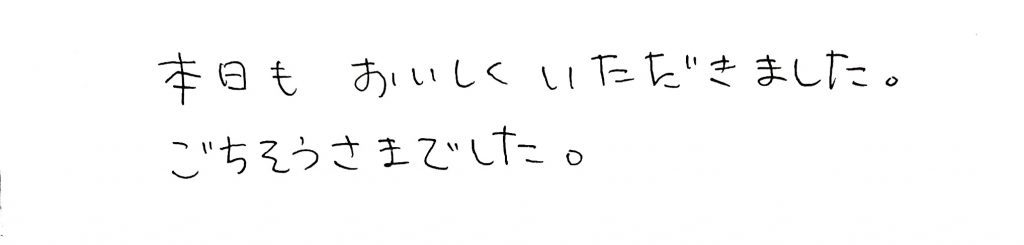 本日も おいしく いただきました。
ごちそうさまでした。